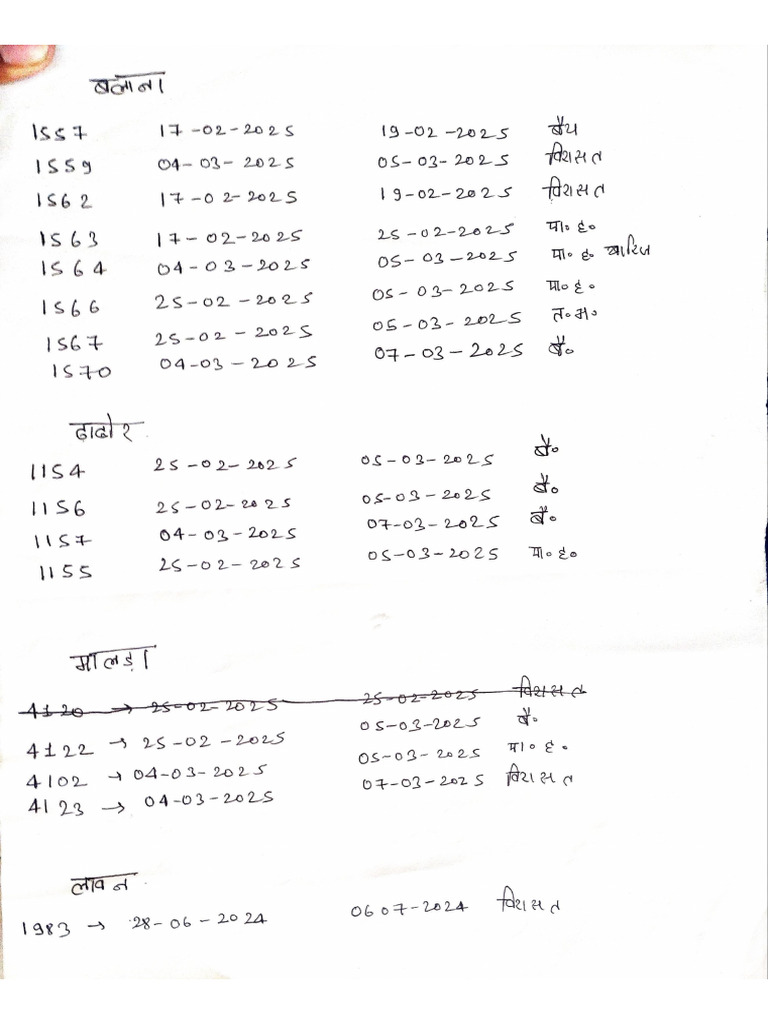 बलाना
1557 17-02-2025 19-02-2025 बैय
1559 04-03-2025 05-03-2025 विरासत
1562 17-02-2025 19-02-2025 विरासत
1563 17-02-2025 25-02-2025 पा॰ ह॰
1564 04-03-2025 05-03-2025 पा॰ ह॰ खारिज
1566 25-02-2025 05-03-2025 पा॰ ह॰
1567 25-02-2025 05-03-2025 त॰ म॰
1570 04-03-2025 07-03-2025 बै॰
ढाढोर
1154 25-02-2025 05-03-2025 बै॰
1156 25-02-2025 05-03-2025 बै॰
1157 04-03-2025 07-03-2025 बै॰
1155 25-02-2025 05-03-2025 पा॰ ह॰
मालड़ा
4120 → 25-02-2025 25-02-2025 विरासत
4122 → 25-02-2025 05-03-2025 बै॰
4102 → 04-03-2025 05-03-2025 पा॰ ह॰
4123 → 04-03-2025 07-03-2025 विरासत
लावन
1983 → 28-06-2024 06 07-2024 विरासत